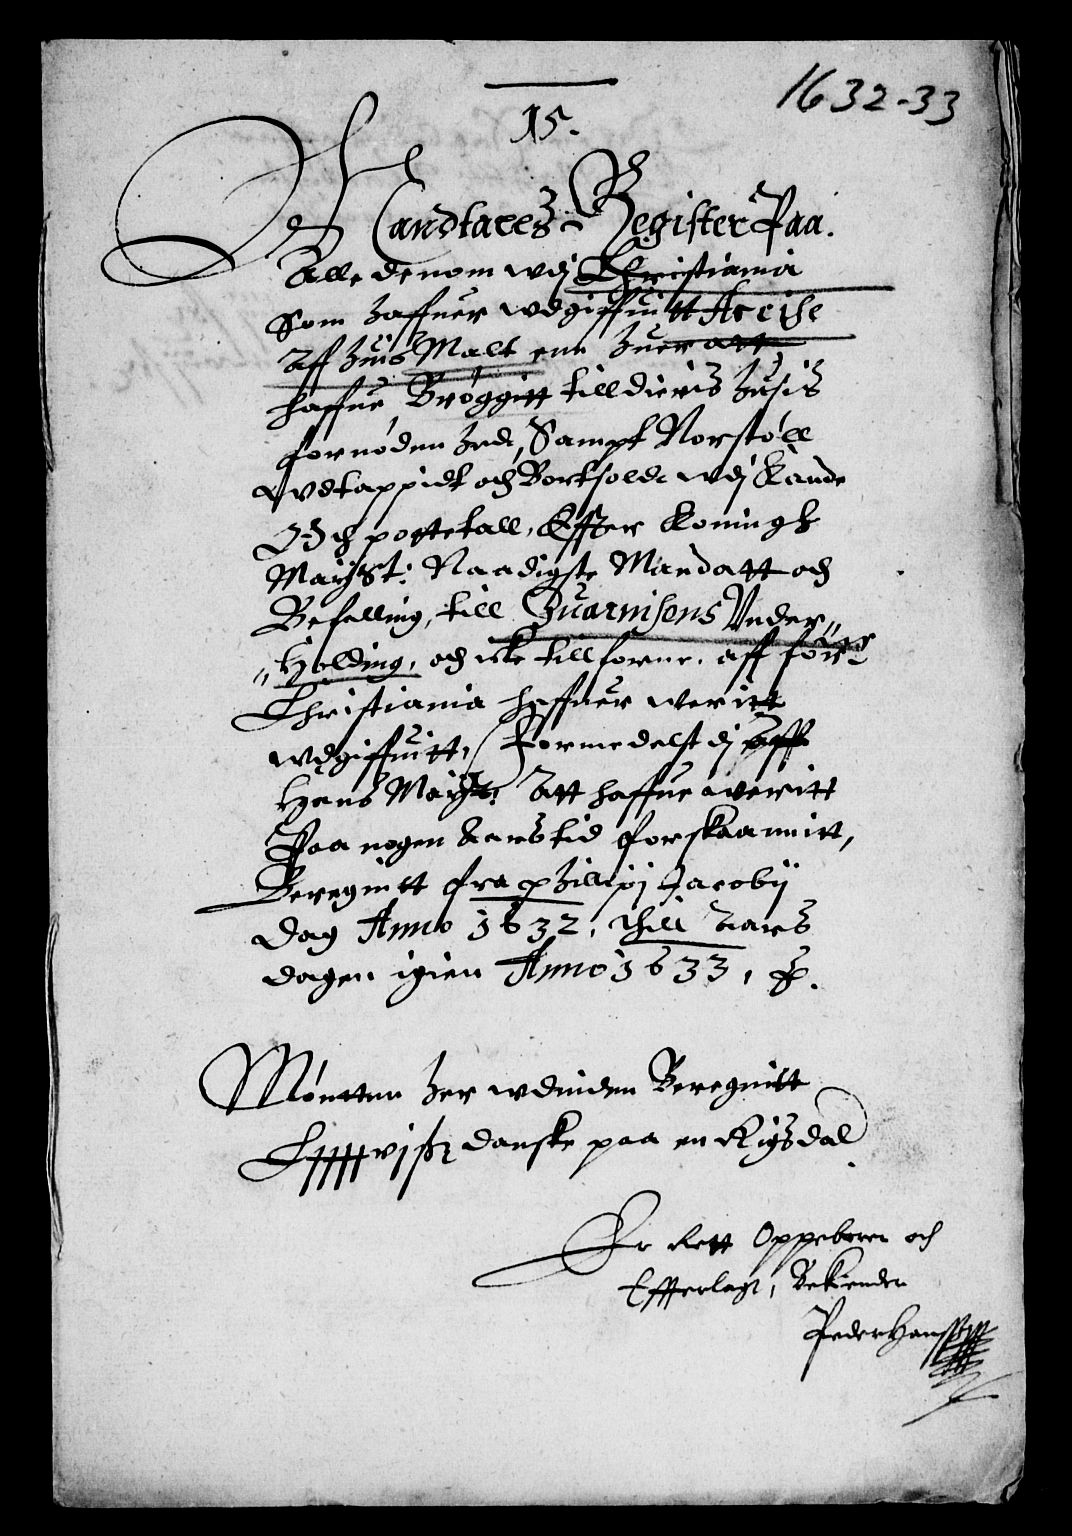 1632-33
15.
Mandtaes Register Paa.
Alle denom wdj Christiania
Som haffuer wdgiffuitt Accise
Aff huis Malt enn huer att
haffue Brøggitt till dieris husis
fornødenhed, Sampt Norstøll
wdtappidt och Bortsoldt wdj Kande
Och pottetall, Effter Koningh
Maÿst: Naadigste Mandatt och
Befelling, till Quarnisens Vnder,,
,,Holding, och icke tillforne. aff for:ne
Christiania haffuer weritt
wdgiffuitt, Formedelst dj aff
Hans Maÿst: Att haffue weritt
Paa nogen Aars tid forskaannitt,
Beregnitt fra Philippi Jacobij
dag Anno 1632, Thill Aars
dagen igien Anno 1633,
Møntten her wdinden Beregnitt
danske paa en Rigsdal.
Er Rett Oppeboren och
Effterlagt, Bekiender
Peder Hanssen